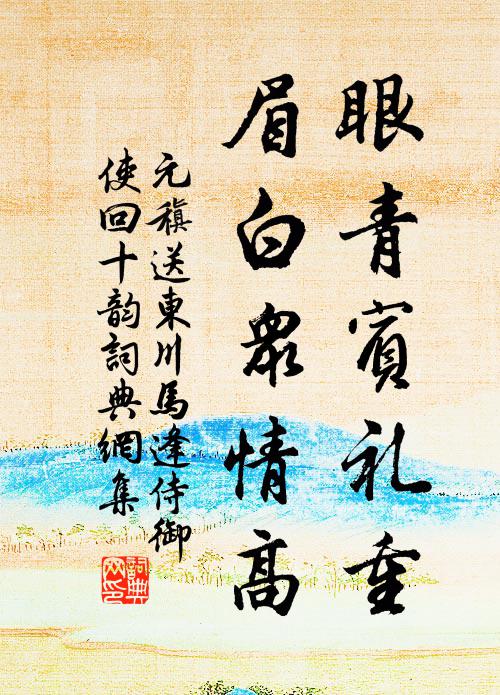 眼青賓礼重
眉白衆情高
元稹送東川馬逢侍御
使回十韵詞典網集
詞典
网印